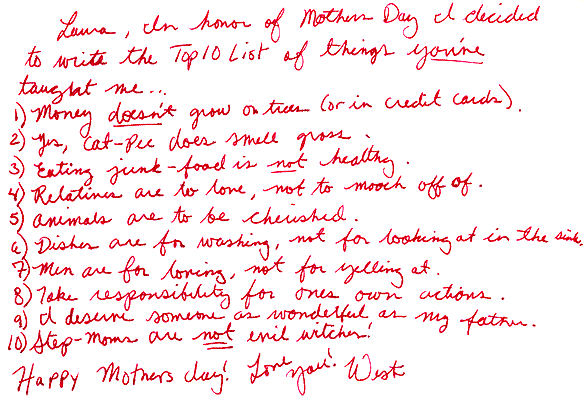 Laura, In honor of Mothers Day I decided
to write the Top 10 List of things you've
taught me...
1) Money doesn't grow on trees (or in credit cards).
2) Yes, cat-pee does smell gross.
3) Eating junk-food is not healthy.
4) Relatives are to love, not to mooch off of.
5) Animals are to be cherished.
6) Dishes are for washing, not for looking at in the sink.
7) Men are for loving, not for yelling at.
8) Take responsibility for ones own actions.
9) I deserve someone as wonderful as my father.
10) Step-Moms are not evil witches!
Happy Mothers day! Love you! West